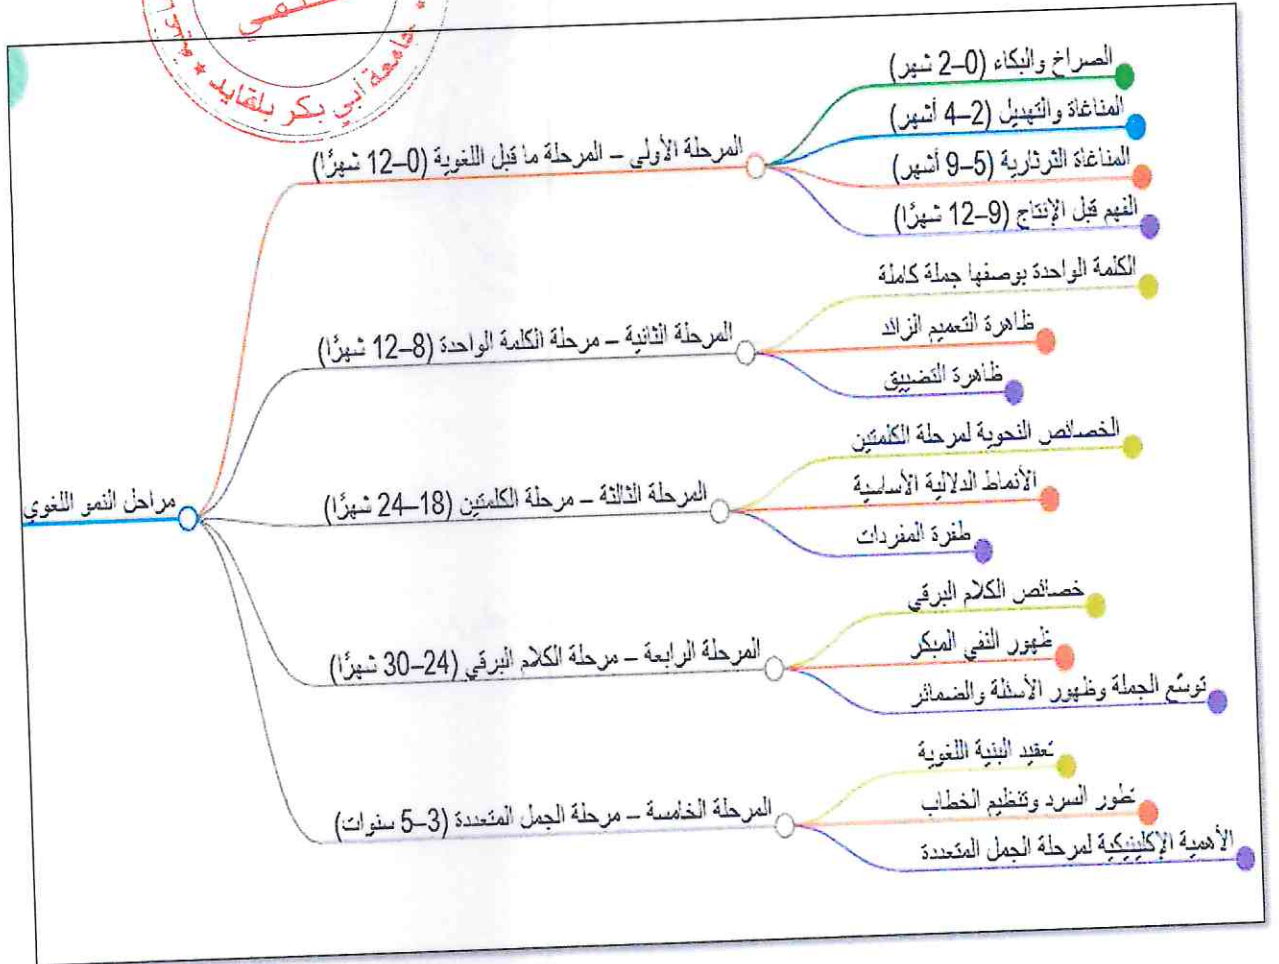 علمي
جامعة أبي بكر بلقايد
مراحل النمو اللغوي
المرحلة الأولى – المرحلة ما قبل اللغوية (0–12 شهرًا)
الصراخ والبكاء (0–2 شهر)
المناغاة والتهديل (2–4 أشهر)
المناغاة الثرثارية (5–9 أشهر)
الفهم قبل الإنتاج (9–12 شهرًا)
المرحلة الثانية – مرحلة الكلمة الواحدة (8–12 شهرًا)
الكلمة الواحدة بوصفها جملة كاملة
ظاهرة التعميم الزائد
ظاهرة التضييق
المرحلة الثالثة – مرحلة الكلمتين (18–24 شهرًا)
الخصائص النحوية لمرحلة الكلمتين
الأنماط الدلالية الأساسية
طفرة المفردات
المرحلة الرابعة – مرحلة الكلام البرقي (24–30 شهرًا)
خصائص الكلام البرقي
ظهور النفي المبكر
توسّع الجملة وظهور الأسئلة والضمائر
المرحلة الخامسة – مرحلة الجمل المتعددة (3–5 سنوات)
تعقيد البنية اللغوية
تطور السرد وتنظيم الخطاب
الأهمية الإكلينيكية لمرحلة الجمل المتعددة